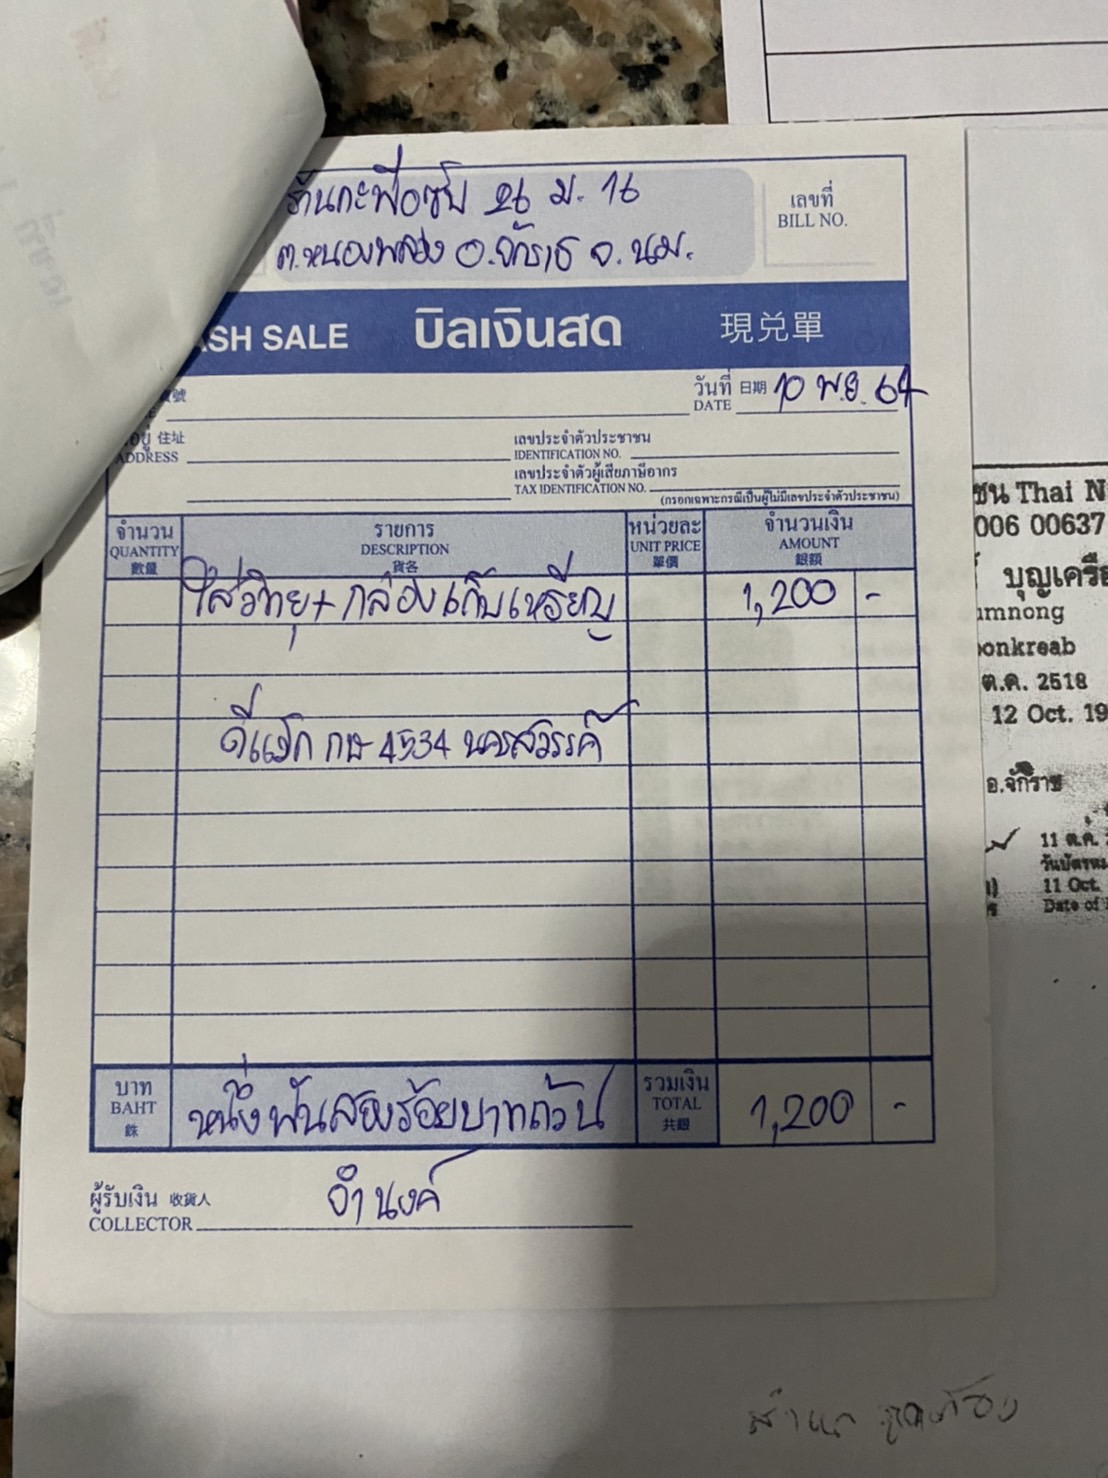 ร้านกะพีอซุบ 26 ม. 16
ต.หนองพลวง อ.จักราช จ.นม.
เลขที่
BILL NO.
ASH SALE บิลเงินสด 現兌單
วันที่ 日期 10 พ.ย. 64
DATE
號
住址
ADDRESS
เลขประจำตัวประชาชน
IDENTIFICATION NO.
เลขประจำตัวผู้เสียภาษีอากร
TAX IDENTIFICATION NO.
(กรอกเฉพาะกรณีเป็นผู้ไม่มีเลขประจำตัวประชาชน)
จำนวน รายการ หน่วยละ จำนวนเงิน
QUANTITY DESCRIPTION UNIT PRICE AMOUNT
數量 貨名 單價 銀額
ใส่วิทยุ + กล่องเก็บเหรียญ 1,200 -
ดีแม็ก กษ 4534 นครสวรรค์
บาท หนึ่งพันสองร้อยบาทถ้วน รวมเงิน 1,200 -
BAHT TOTAL
銖 共銀
ผู้รับเงิน 收貨人 จำนงค์
COLLECTOR
ชน Thai N
006 00637
บุญเครือ
umnong
oonkreab
ต.ค. 2518
12 Oct. 19
อ.จักราช
11 ต.ค.
วันบัตรหม
11 Oct.
Date of
สำเนาถูกต้อง